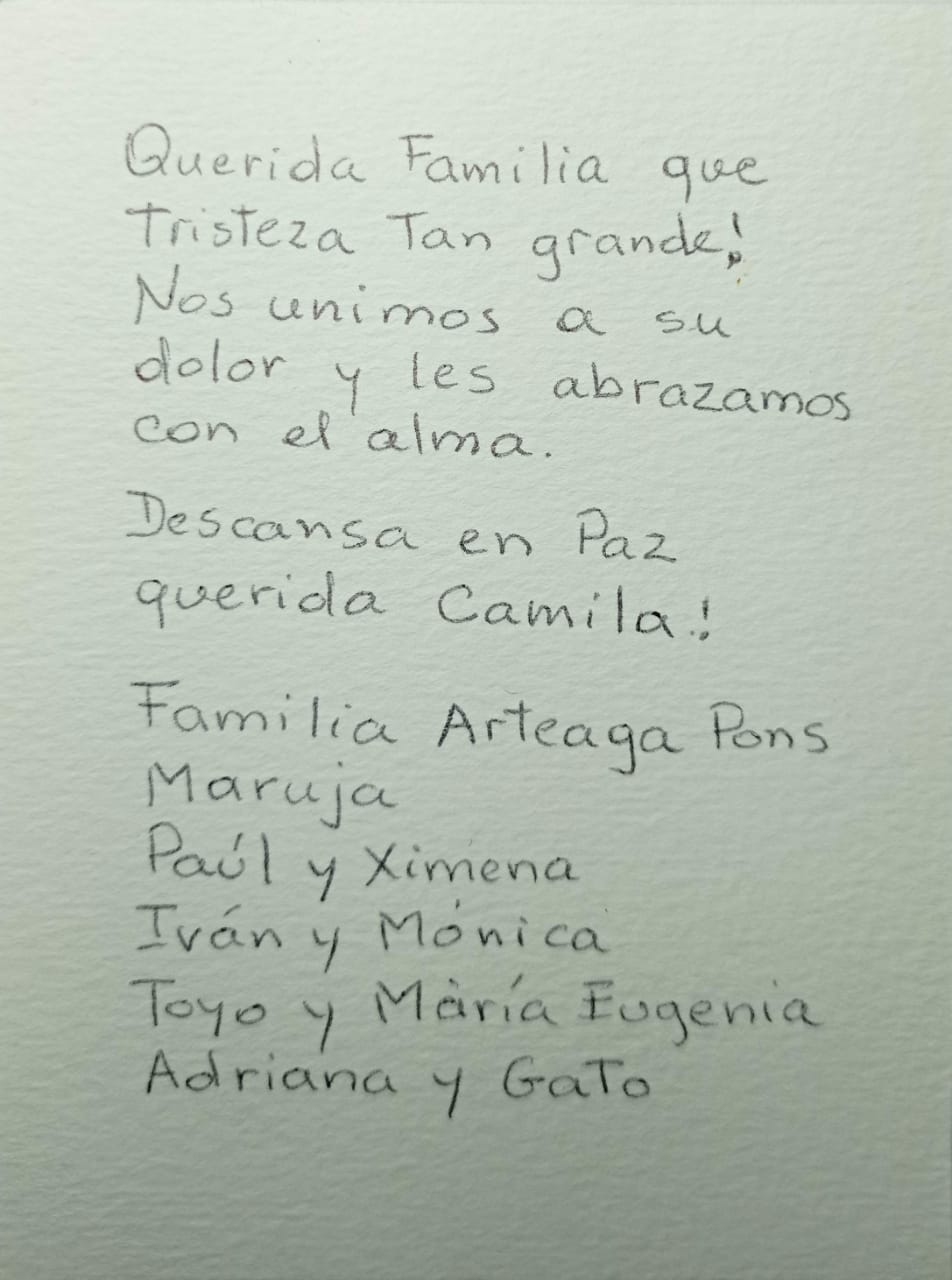 Querida Familia que
Tristeza Tan grande!
Nos unimos a su
dolor y les abrazamos
con el alma.
Descansa en Paz
querida Camila!
Familia Arteaga Pons
Maruja
Paúl y Ximena
Iván y Mónica
Toyo y María Eugenia
Adriana y Gato